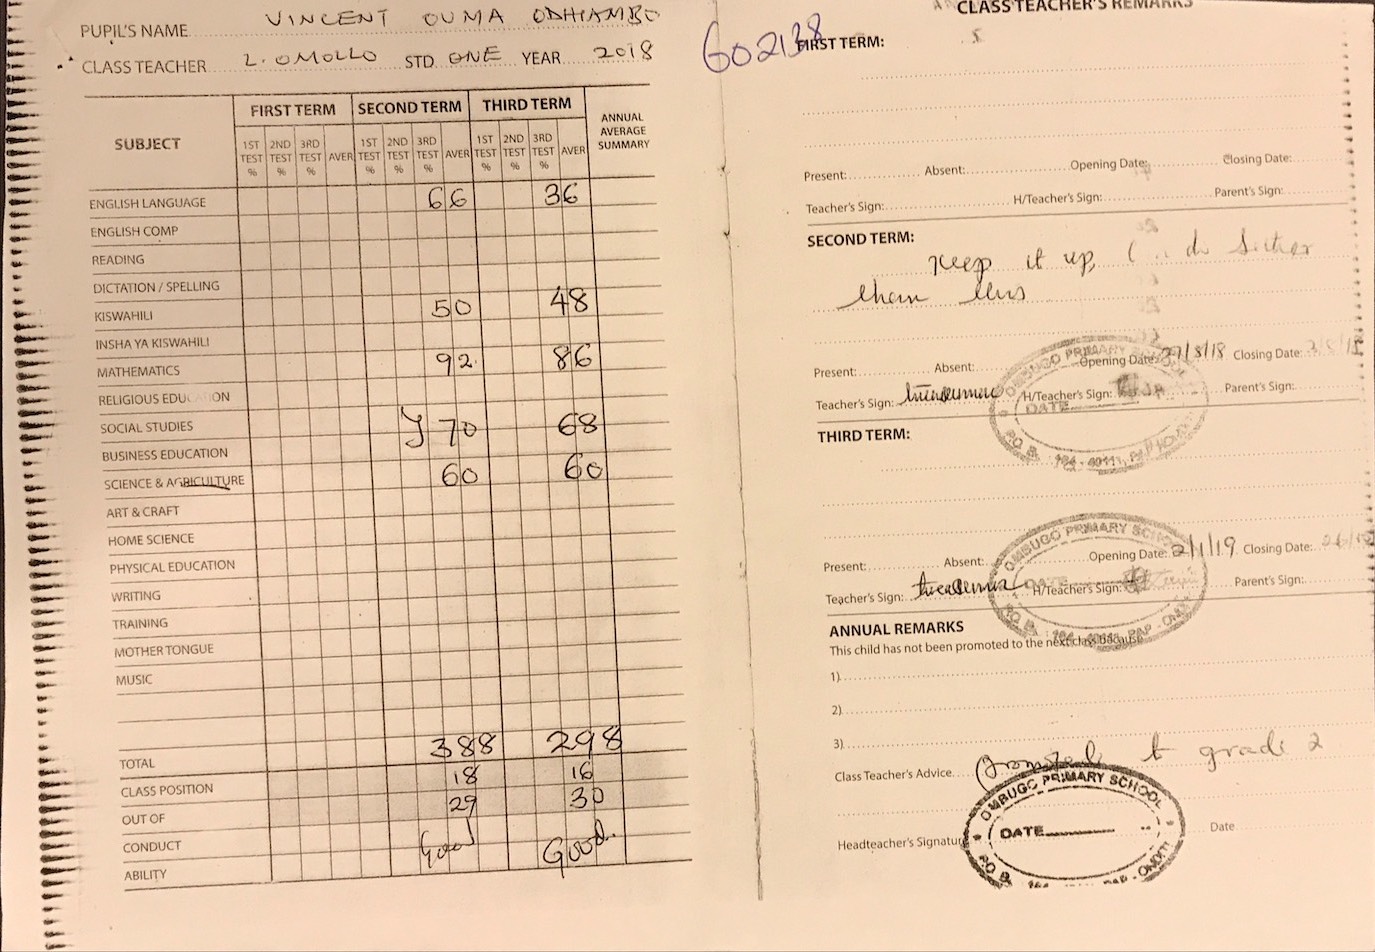 PUPIL'S NAME VINCENT OUMA ODHIAMBO
CLASS TEACHER L. OMOLLO STD ONE YEAR 2018
SUBJECT FIRST TERM SECOND TERM THIRD TERM ANNUAL AVERAGE SUMMARY
1ST TEST % 2ND TEST % 3RD TEST % AVER 1ST TEST % 2ND TEST % 3RD TEST % AVER 1ST TEST % 2ND TEST % 3RD TEST % AVER
ENGLISH LANGUAGE 66 36
ENGLISH COMP
READING
DICTATION / SPELLING
KISWAHILI 50 48
INSHA YA KISWAHILI
MATHEMATICS 92 86
RELIGIOUS EDUCATION
SOCIAL STUDIES 70 68
BUSINESS EDUCATION
SCIENCE & AGRICULTURE 60 60
ART & CRAFT
HOME SCIENCE
PHYSICAL EDUCATION
WRITING
TRAINING
MOTHER TONGUE
MUSIC
TOTAL 388 298
CLASS POSITION 18 16
OUT OF 29 30
CONDUCT Good Good.
ABILITY
602138
CLASS TEACHER'S REMARKS
FIRST TERM:
Present: Absent: Opening Date: Closing Date:
Teacher's Sign: H/Teacher's Sign: Parent's Sign:
SECOND TERM:
Keep it up,
Present: Absent: Opening Date: 27/8/18 Closing Date:
Teacher's Sign: H/Teacher's Sign: Parent's Sign:
OMBUGO PRIMARY SCHOOL
DATE
THIRD TERM:
Present: Absent: Opening Date: 2/1/19 Closing Date:
Teacher's Sign: H/Teacher's Sign: Parent's Sign:
OMBUGO PRIMARY SCHOOL
DATE
ANNUAL REMARKS
This child has not been promoted to the next class because
1)
2)
3)
Class Teacher's Advice to grade 2
Headteacher's Signature Date
OMBUGO PRIMARY SCHOOL
DATE